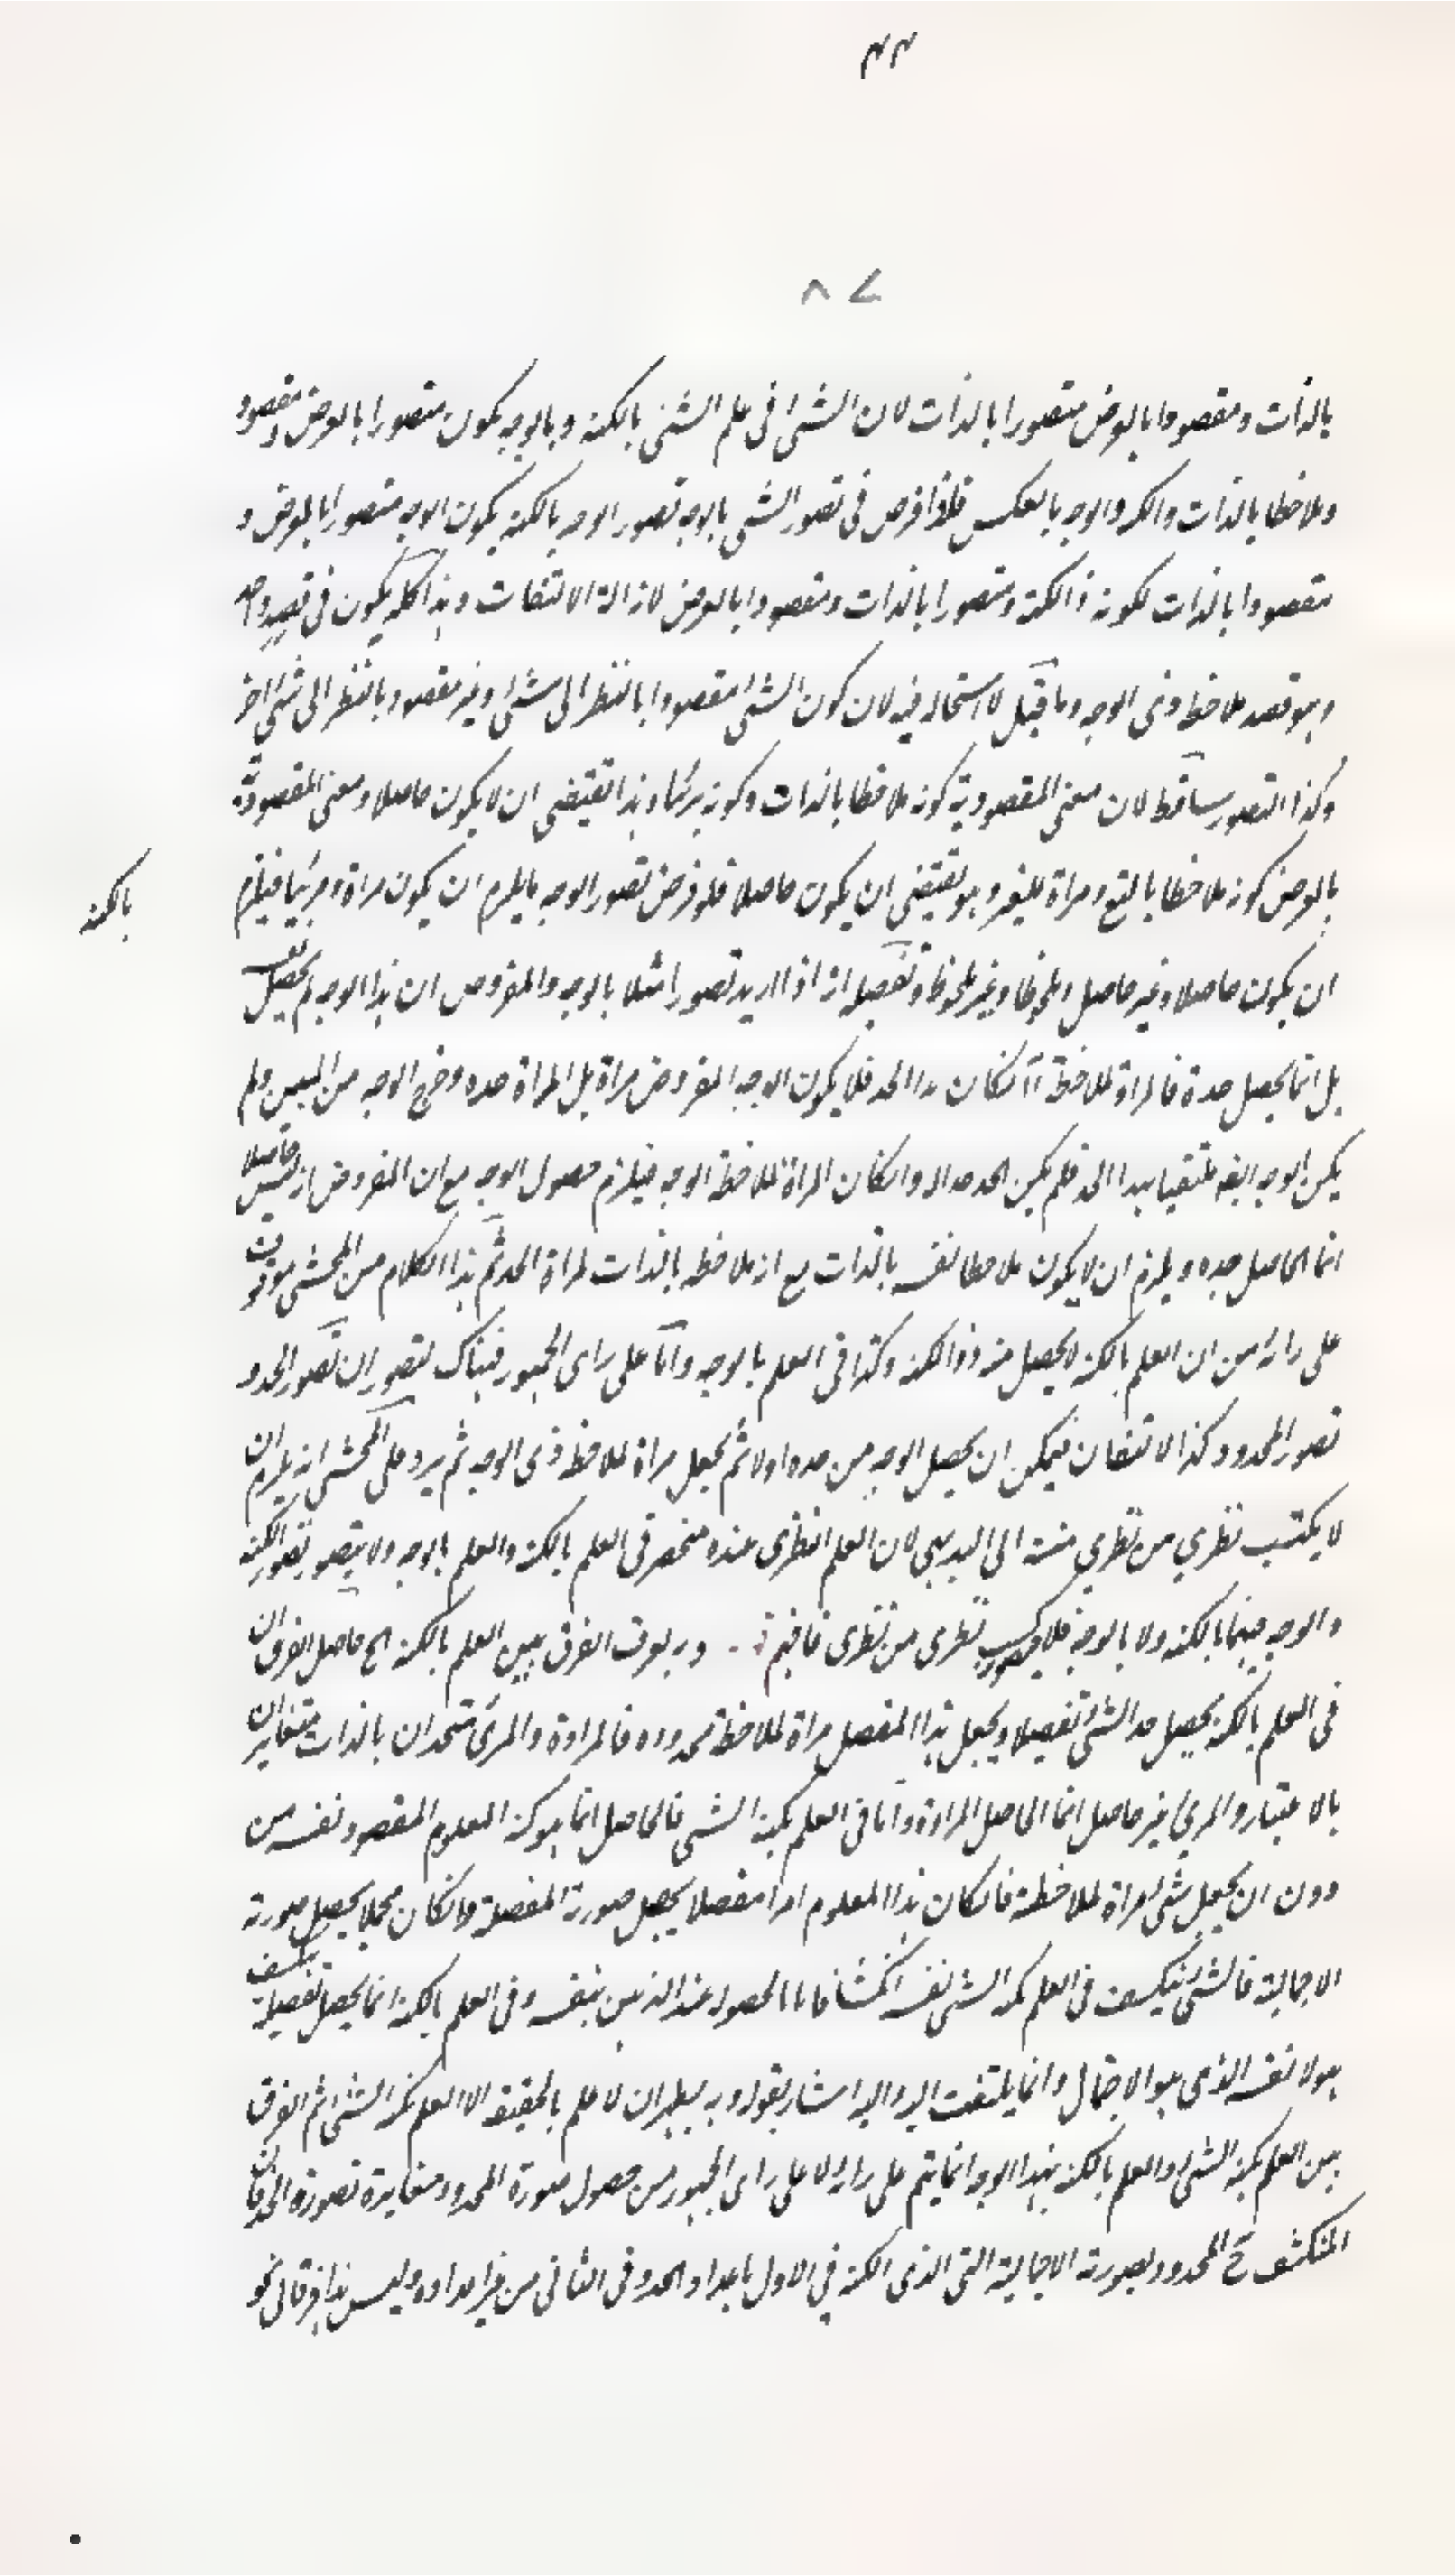 ٤٤
٨٧
بالذات ومقصودا بالعرض متصورا بالذات لان الشئ في علم الشئ بالكنه وبالوجه يكون متصورا بالعرض ومقصود
وملاحظا بالذات والكنه والوجه بالعكس فلو فرض في تصور الشئ بالوجه تصور الوجه بالكنه يكون الوجه متصورا بالعرض و
مقصودا بالذات لكونه ذا الكنه ومتصورا بالذات ومقصودا بالعرض لانه الة الالتفات وهذا كله يكون في قصد واحد
وهو قصد ملاحظة ذي الوجه وما قيل لا استحالة فيه لان كون الشئ مقصودا بالنظر الى شئ وغير مقصود بالنظر الى شئ اخر
وكذا التصور ساقط لان معنى المقصودية كونه ملاحظا بالذات وكونه مرئيا وهذا يقتضي ان لا يكون حاصلا ومعنى المقصودية
بالعرض كونه ملاحظا بالتبع ومراة للغير وهو يقتضي ان يكون حاصلا فلو فرض تصور الوجه يلزم ان يكون مراة ومرئيا فيلزم
بالكنه
ان يكون حاصلا وغير حاصل وملحوظا وغير ملحوظا وتفصيله انه اذا اريد تصور امثلا بالوجه والمفروض ان هذا الوجه لم يحصل نفسه
بل انما يحصل حده فالمراة للملاحظة ان كان هذا الحد فلا يكون الوجه المفروض مراة بل المراة حده وخرج الوجه من البين ولم
يكن الوجه ايضا ملتفتا بهذا الحد فلم يكن الحد حدا له وان كان المراة لملاحظة الوجه فيلزم حصول الوجه مع ان المفروض انه ليس حاصلا
انما الحاصل حده ويلزم ان لا يكون ملاحظا نفسه بالذات مع انه ملاحظه بالذات لمراة الحد ثم هذا الكلام من المحشي موقوف
على رايه من ان العلم بالكنه لا يحصل منه ذو الكنه وكذا في العلم بالوجه واما على راى الجمهور فهناك تصور ان تصور الحد و
تصور المحدود وكذا الالتفاتان فيمكن ان يحصل الوجه من حده اولا ثم يجعل مراة لملاحظة ذي الوجه ثم يرد على المحشي انه يلزم ان
لا يكتسب نظري من نظري منته الى البديهي لان العلم النظري عنده منحصر في العلم بالكنه والعلم بالوجه ولا يتصور تصور الكنه
والوجه فيهما بالكنه ولا بالوجه فلا يكتسب نظري من نظري فافهم وبه يعرف الفرق بين العلم بالكنه الخ حاصل الفرق ان
في العلم بالكنه يحصل حد الشئ تفصيلا ويجعل هذا المفصل مراة لملاحظة محدوده فالمراة والمرئ متحدان بالذات متغايران
بالاعتبار والمرئ غير حاصل انما الحاصل المراة واما في العلم بكنه الشئ فالحاصل انما هو كنه المعلوم المقصود نفسه من
دون ان يجعل شئ مراة لملاحظة فان كان هذا المعلوم امرا مفصلا يحصل صورته المفصلة وان كان مجملا يحصل صورته
الاجمالية فالشئ ينكشف في العلم بكنه الشئ نفسه انكشافا تاما لحصوله عند الذهن بنفسه وفي العلم بالكنه انما يحصل تفصيله
هو لا نفسه الذي هو الاجمال وانما يلتفت اليه واليه اشار بقوله وبه يظهر ان لا علم بالحقيقة الا العلم بكنه الشئ ثم الفرق
بين العلم بكنه الشئ والعلم بالكنه بهذا الوجه انما يتم على رايه لا على راى الجمهور من حصول صورة المحدود مغايرة لصورة الحد فان
المنكشف ح المحدود بصورته الاجمالية التي الذي الكنه في الاول باعداد الحد وفي الثاني من غير اعداده وليس هذا فرقا في نحو